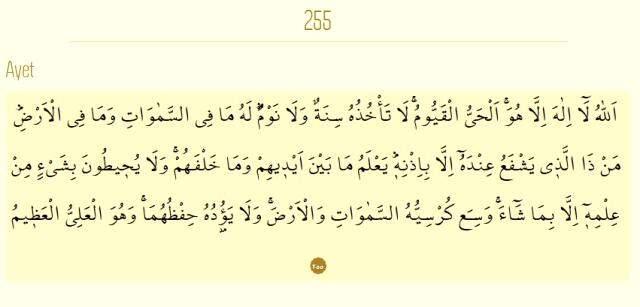 255
Ayet
اَللّٰهُ لَٓا اِلٰهَ اِلَّا هُوَۚ اَلْحَيُّ الْقَيُّومُۚ لَا تَأْخُذُهُ سِنَةٌ وَلَا نَوْمٌۜ لَهُ مَا فِى السَّمٰوَاتِ وَمَا فِى الْاَرْضِۜ
مَنْ ذَا الَّذ۪ى يَشْفَعُ عِنْدَهُٓ اِلَّا بِاِذْنِه۪ۜ يَعْلَمُ مَا بَيْنَ اَيْد۪يهِمْ وَمَا خَلْفَهُمْۚ وَلَا يُح۪يطُونَ بِشَىْءٍ مِنْ
عِلْمِه۪ٓ اِلَّا بِمَا شَٓاءَۚ وَسِعَ كُرْسِيُّهُ السَّمٰوَاتِ وَالْاَرْضَۚ وَلَا يَؤُ۫دُهُ حِفْظُهُمَاۚ وَهُوَ الْعَلِىُّ الْعَظ۪يمُ
٢٥٥